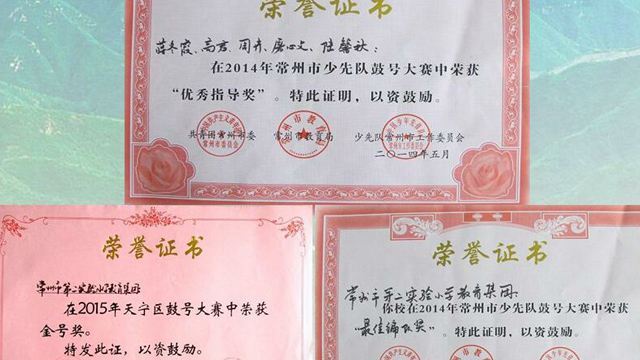 荣誉证书
蒋冬霞、高君、周卉、唐心文、陆馨秋：
在2014年常州市少先队鼓号大赛中荣获
“优秀指导奖”。特此证明，以资鼓励。
共青团常州市委 常州市教育局 少先队常州市工作委员会
二〇一四年五月
荣誉证书
常州市第二实验小学教育集团
在2015年天宁区鼓号大赛中荣获
金号奖。
特发此证，以资鼓励。
荣誉证书
常州市第二实验小学教育集团：
你校在2014年常州市少先队鼓号大赛中荣获
“最佳编配奖”。特此证明，以资鼓励。